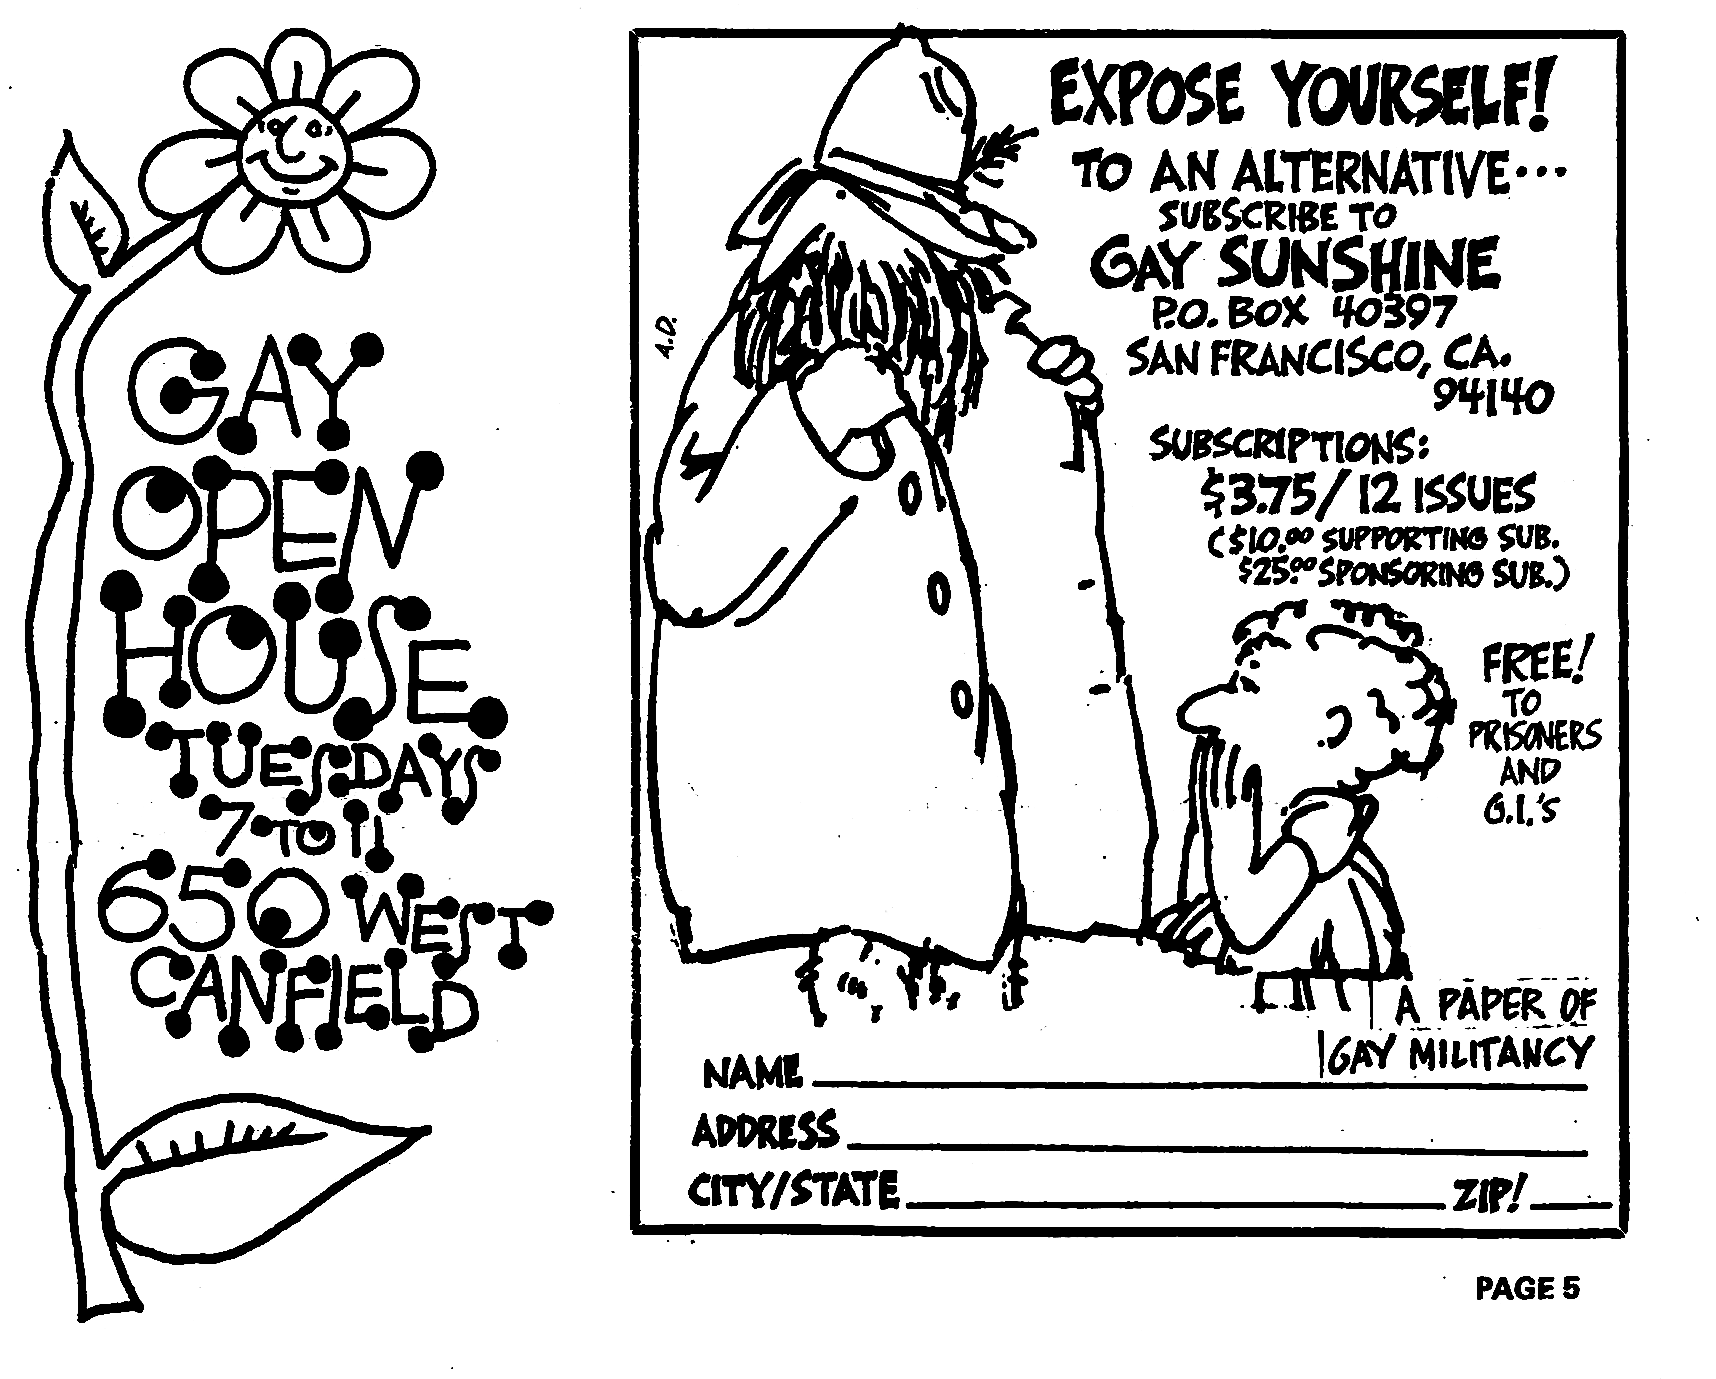 GAY
OPEN
HOUSE
TUESDAYS
7 TO 11
650 WEST
CANFIELD
A.D.
EXPOSE YOURSELF!
TO AN ALTERNATIVE...
SUBSCRIBE TO
GAY SUNSHINE
P.O. BOX 40397
SAN FRANCISCO, CA.
94140
SUBSCRIPTIONS:
$3.75/12 ISSUES
($10.00 SUPPORTING SUB.
$25.00 SPONSORING SUB.)
FREE!
TO
PRISONERS
AND
G.I.'S
A PAPER OF
GAY MILITANCY
NAME
ADDRESS
CITY/STATE ZIP!
PAGE 5